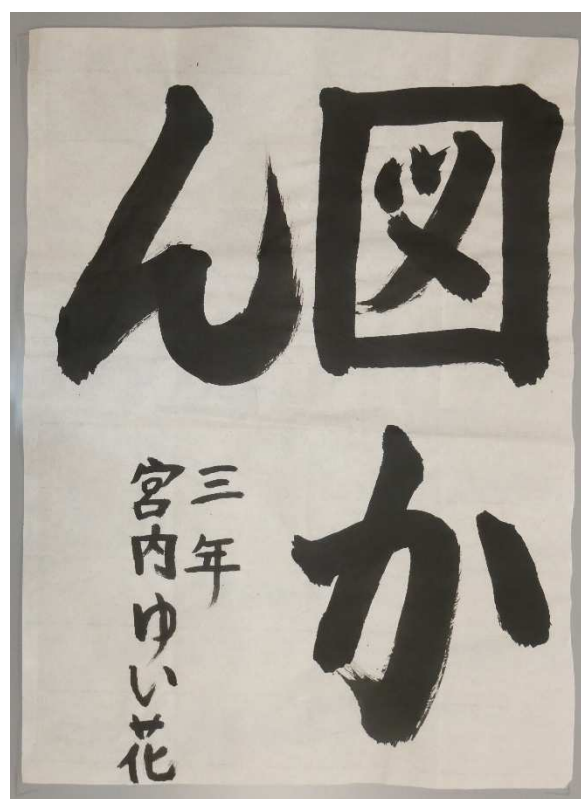 図か
ん
三年
宮内ゆい花